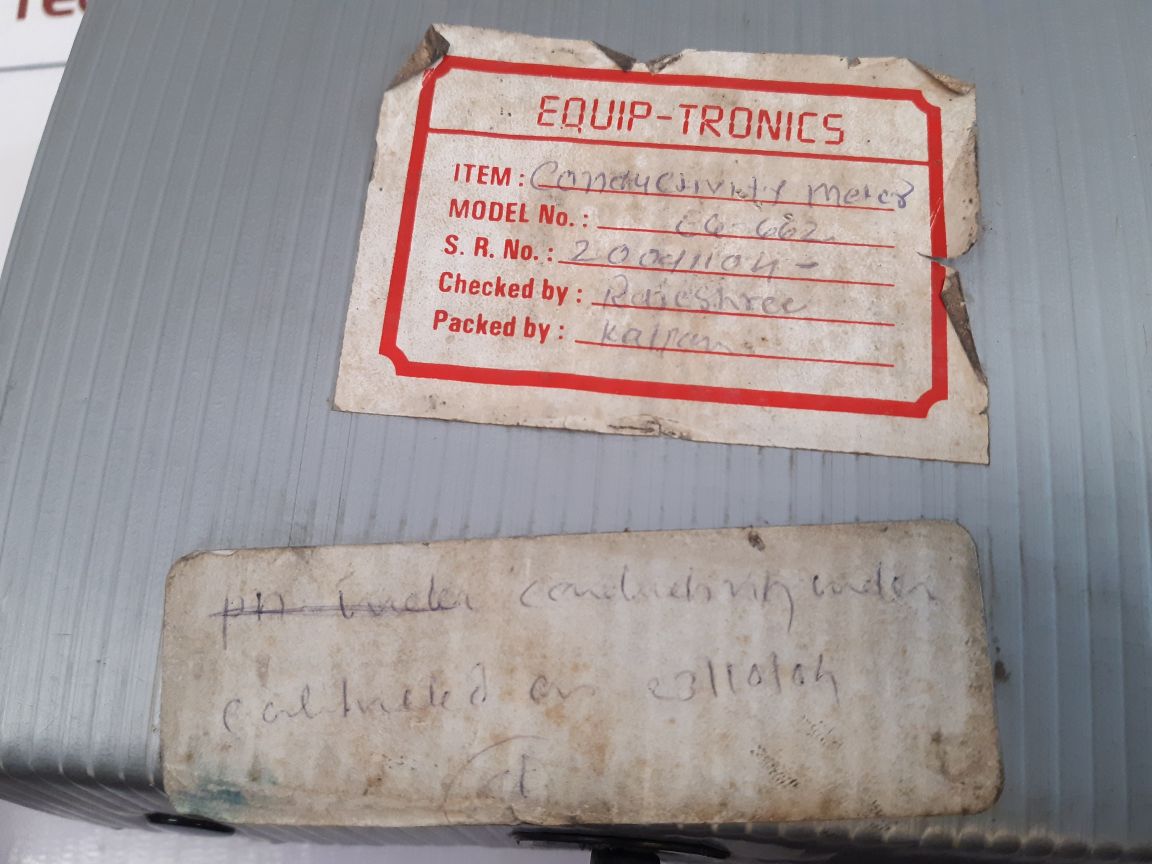 EQUIP-TRONICS
ITEM : Conductivity meter
MODEL No. :
S. R. No. :
Checked by : Rajeshree
Packed by :
pH meter conductivity meter
calibrated on 23/10/04